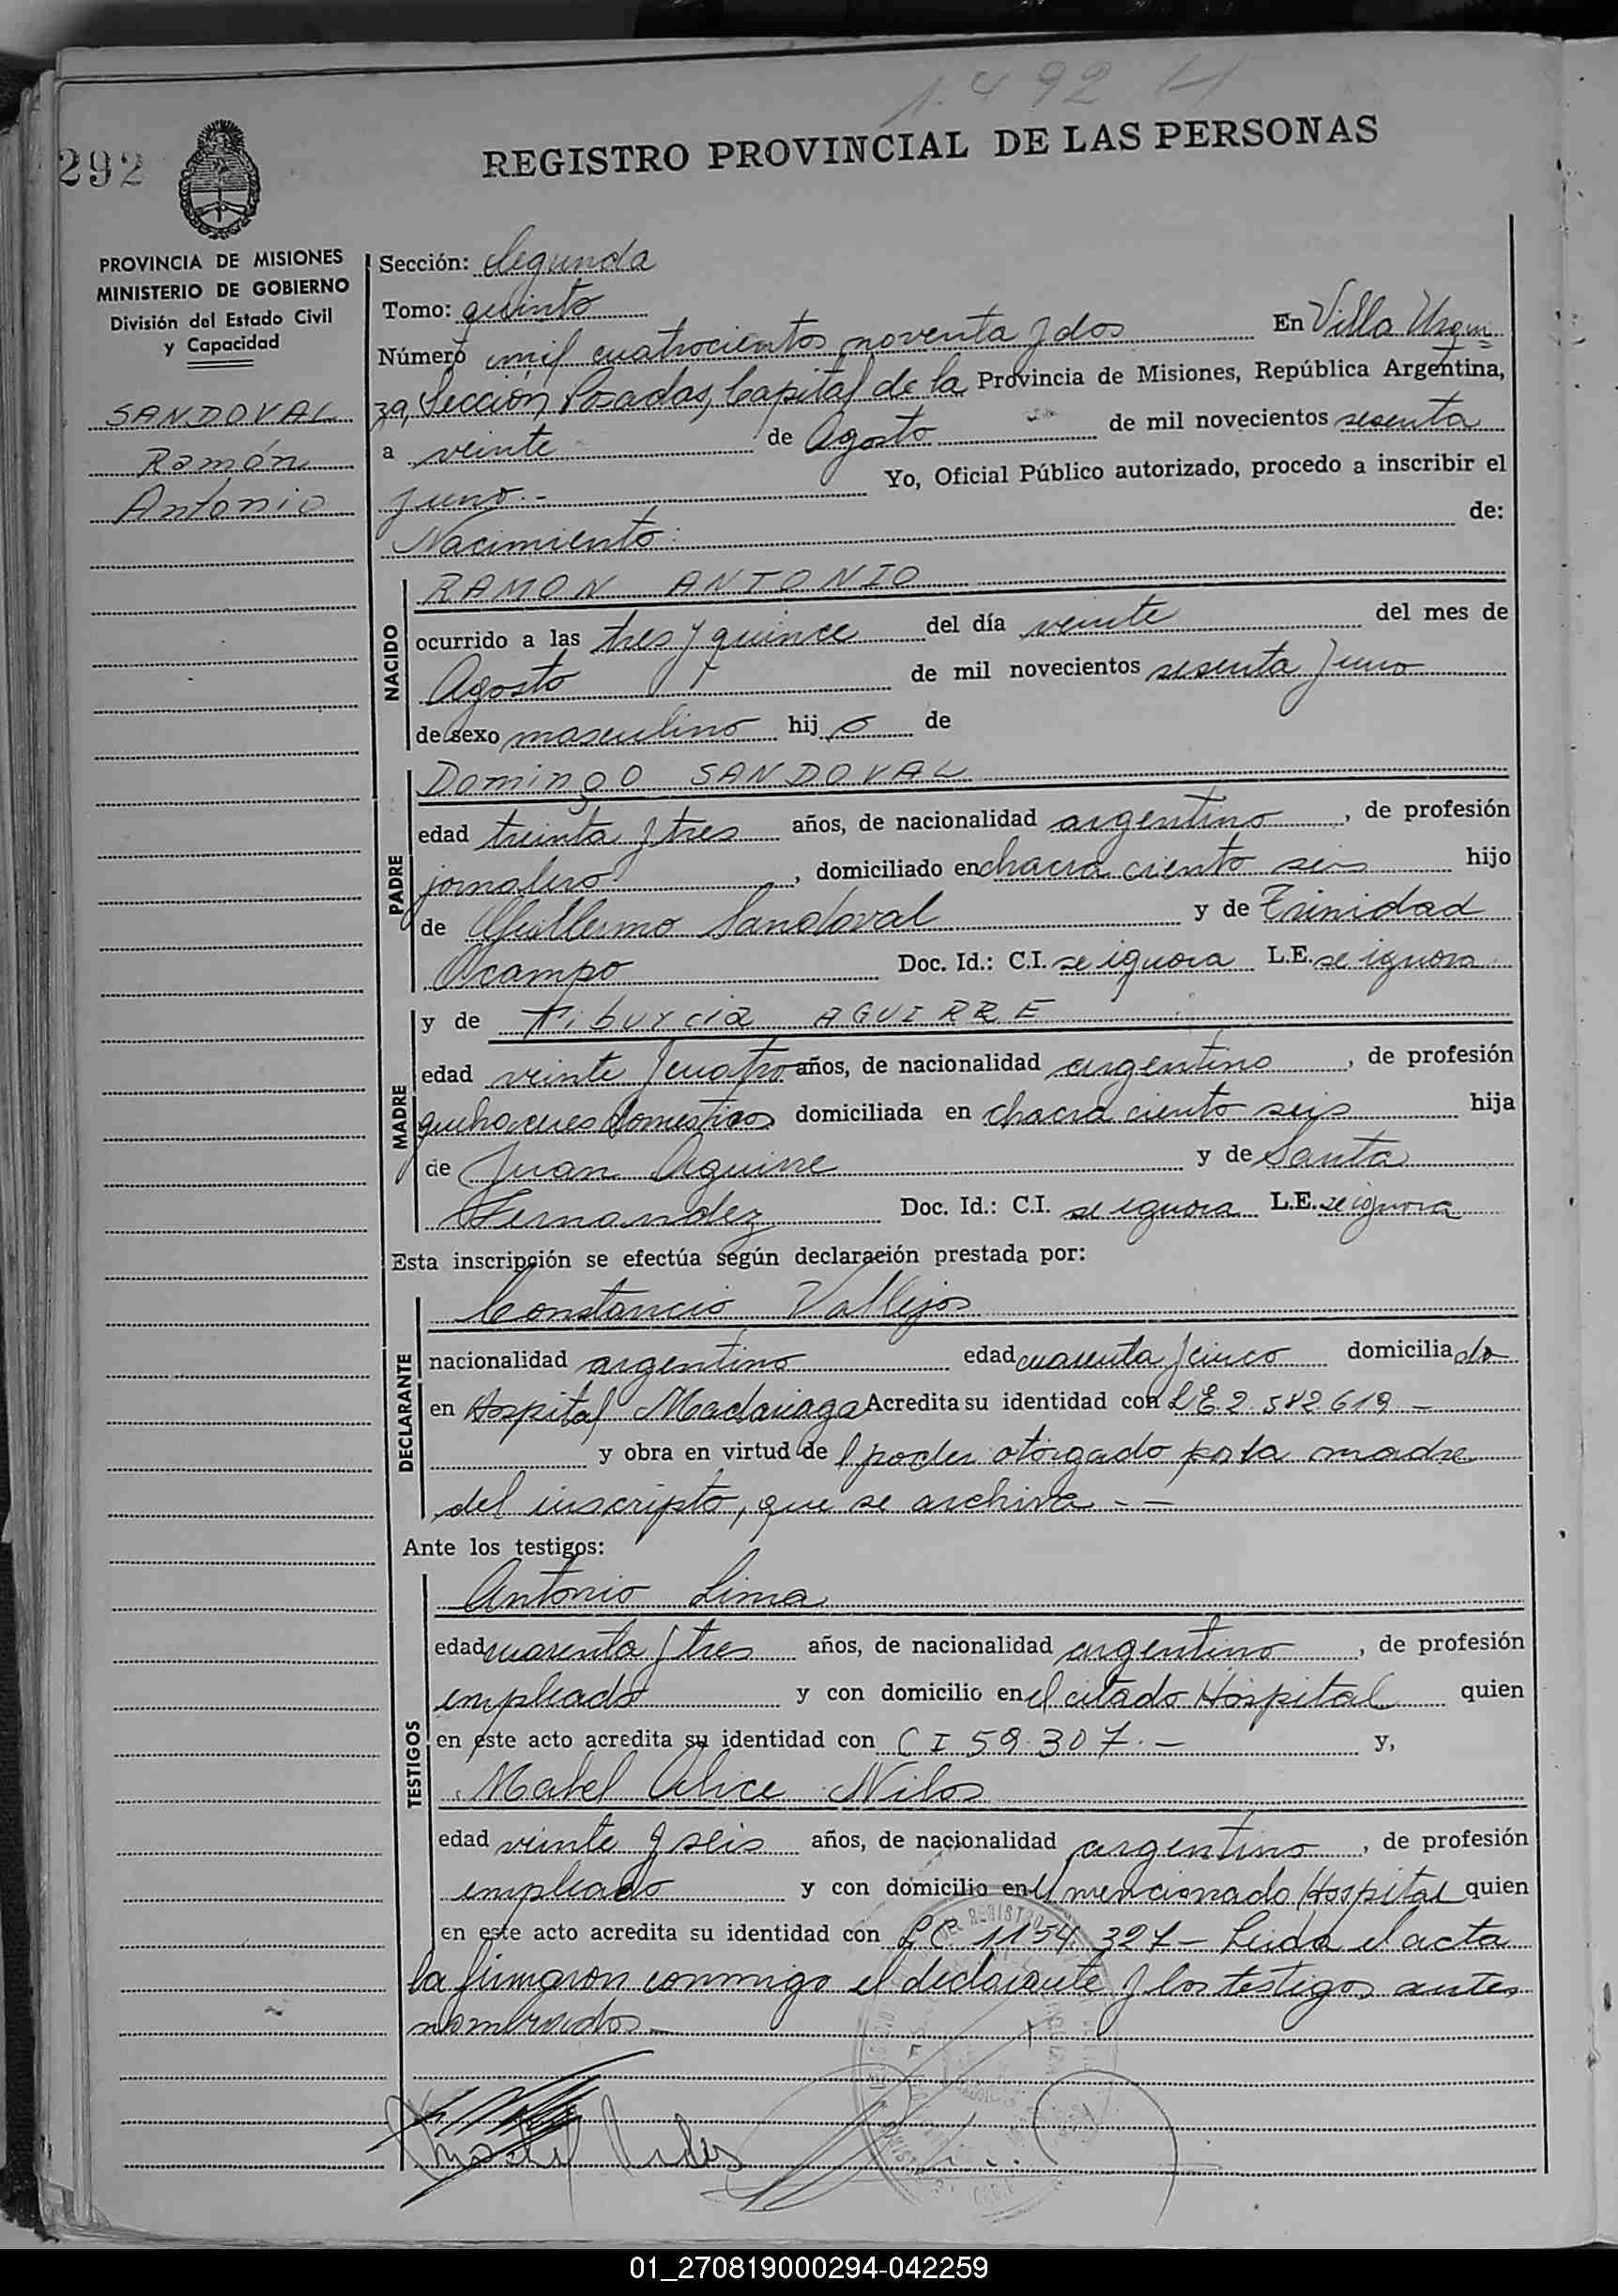 1492 H
292
REGISTRO PROVINCIAL DE LAS PERSONAS
PROVINCIA DE MISIONES
MINISTERIO DE GOBIERNO
División del Estado Civil
y Capacidad
SANDOVAL
Ramón
Antonio
Sección: Segunda
Tomo: quinto
Número mil cuatrocientos noventa y dos En Villa Urqui
za, Sección Posadas, Capital de la Provincia de Misiones, República Argentina,
a veinte de Agosto de mil novecientos sesenta
y uno.- Yo, Oficial Público autorizado, procedo a inscribir el
Nacimiento de:
NACIDO
RAMON ANTONIO
ocurrido a las tres y quince del día veinte del mes de
Agosto de mil novecientos sesenta y uno
de sexo masculino hijo de
PADRE
Domingo SANDOVAL
edad treinta y tres años, de nacionalidad argentino, de profesión
jornalero, domiciliado en chacra ciento seis hijo
de Guillermo Sandoval y de Trinidad
Ocampo Doc. Id.: C.I. se ignora L.E. se ignora
MADRE
y de Tiburcia AGUIRRE
edad veinte y cuatro años, de nacionalidad argentina, de profesión
quehaceres domesticos domiciliada en chacra ciento seis hija
de Juan Aguirre y de Santa
Fernandez Doc. Id.: C.I. se ignora L.E. se ignora
Esta inscripción se efectúa según declaración prestada por:
DECLARANTE
Constancio Vallejos
nacionalidad argentino edad cuarenta y cinco domiciliado
en Hospital Madariaga Acredita su identidad con L E 2.582619 -
y obra en virtud del poder otorgado por la madre
del inscripto, que se archiva - -
Ante los testigos:
TESTIGOS
Antonio Lima
edad cuarenta y tres años, de nacionalidad argentino, de profesión
empleado y con domicilio en el citado Hospital quien
en este acto acredita su identidad con C I 59.307.- y,
Mabel Alice
edad veinte y seis años, de nacionalidad argentino, de profesión
empleado y con domicilio en el mencionado Hospital quien
en este acto acredita su identidad con LC 1154.327- Leida el acta
la firmaron conmigo el declarante y los testigos antes
nombrados -
01_270819000294-042259